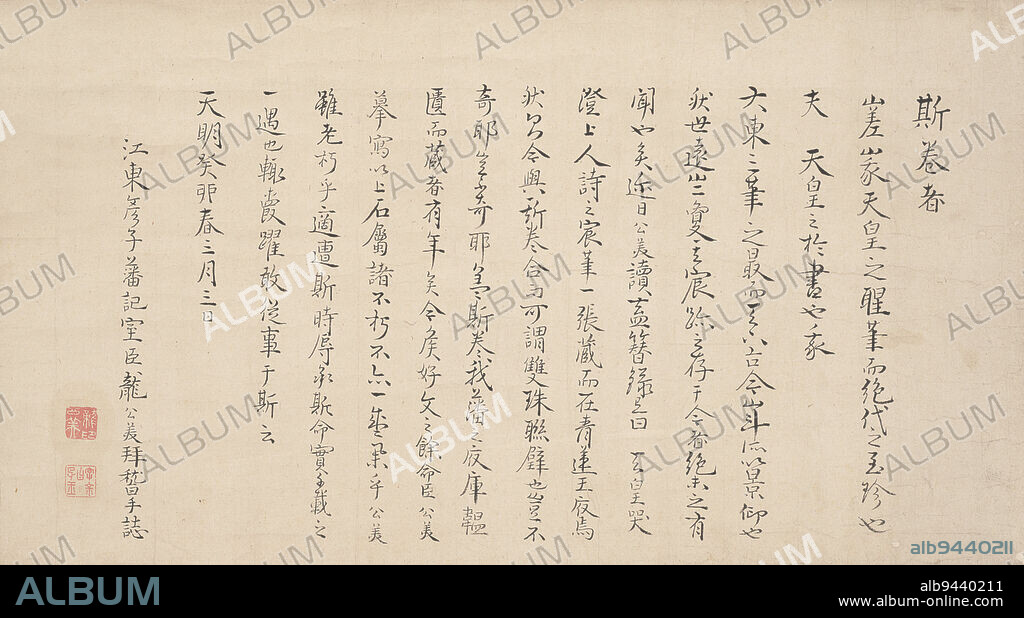 斯卷者
嵯峨天皇之醒筆而絶代之至珍也
夫 天皇之於書也我
大東三筆之最而天下古今山斗所以景仰也
然世遠宸跡之存于今者絶未之有
聞也矣近日公美讀盍簪録曰 天皇哭
澄上人詩之宸筆一張藏而在青蓮王府焉
然今與斯卷合可謂雙珠聯璧也豈不
奇耶豈不奇耶斯卷我藩之府庫韞
匱而藏者有年矣今侯好文之餘命臣公美
摹寫以上石屬諸不朽不亦一盛舉乎公美
雖老朽乎適遭斯時辱承斯命實千載之
一遇也輙躍敢從事于斯云
天明癸卯春三月三日
江東彦子藩記室臣龍公美拜稽手誌
alb9440211
ALBUM
alb9440211
www.album-online.com